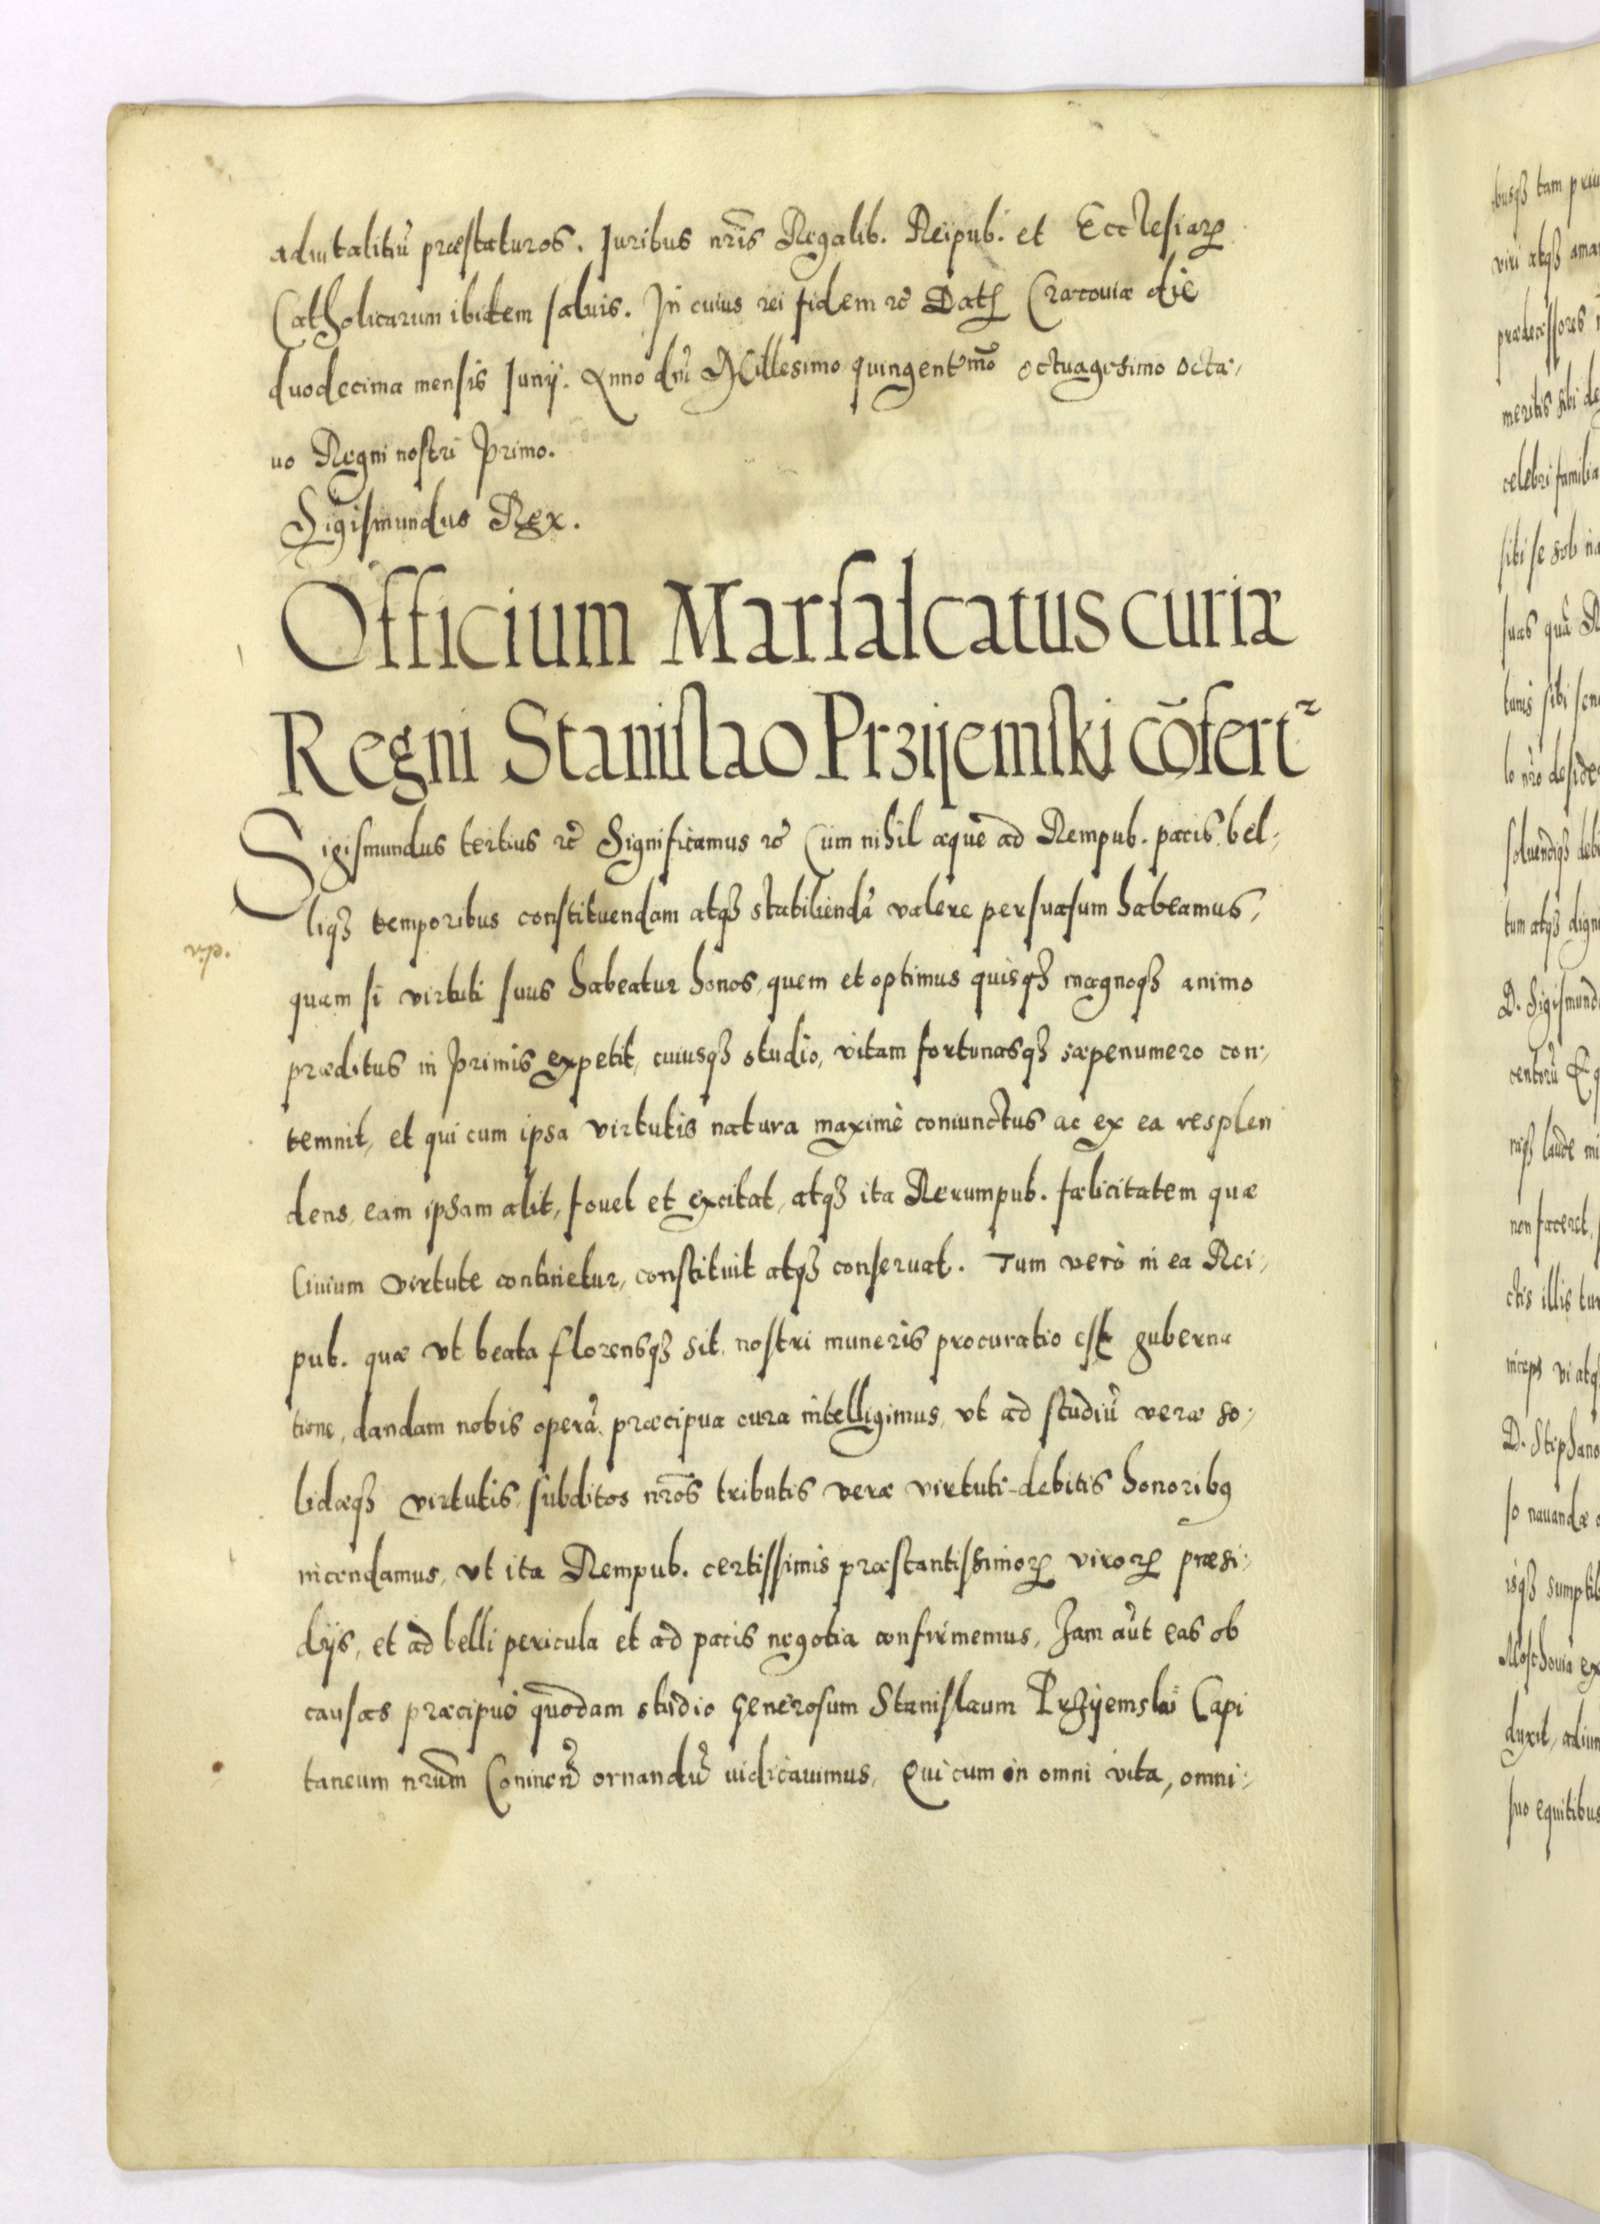 advitalitiũ præstaturos. Iuribus nr̃is Regalib. Reipub. et Ecclesiarꝝ
Catholicarum ibidem saluis. In cuius rei fidem ꝛc̃ Datꝭ Cracouiæ die
duodecima mensis Iunij. Anno dni Millesimo quingentmo octuagesimo octa-
uo Regni nostri Primo.
Sigismundus Rex.
Officium Marsalcatus curiæ
Regni Stanislao Przijemski cõfertᷣ
Sigismundus tertius ꝛc̃ Significamus ꝛc̃ Cum nihil æquè ad Rempub. pacis bel-
liqꝫ temporibus constituendam atqꝫ stabiliendã valere persuasum habeamus,
quam si virtuti suus habeatur honos, quem et optimus quisqꝫ magnoqꝫ animo
præditus in primis expetit, cuiusqꝫ studio, vitam fortunasqꝫ sæpenumero con-
temnit, et qui cum ipsa virtutis natura maximè coniunctus ac ex ea resplen
dens, eam ipsam alit, fouet et excitat, atqꝫ ita Rerumpub. fælicitatem quæ
Ciuium virtute continetur, constituit atqꝫ conseruat. Tum verò in ea Rei-
pub. quæ vt beata florensqꝫ sit, nostri muneris procuratio est guberna
tione, dandam nobis operã præcipua cura intelligimus, vt ad studiũ veræ so-
lidæqꝫ virtutis, subditos nr̃os tributis veræ virtuti debitis honoribꝯ
incendamus, vt ita Rempub. certissimis præstantissimorꝝ virorꝝ præsi-
dijs, et ad belli pericula et ad pacis negotia confirmemus, Iam aũt eas ob
causas præcipuo quodam studio Generosum Stanislaum Przijemski Capi
taneum nrum Coninen ornandũ iudicauimus, Qui cum in omni vita, omni-